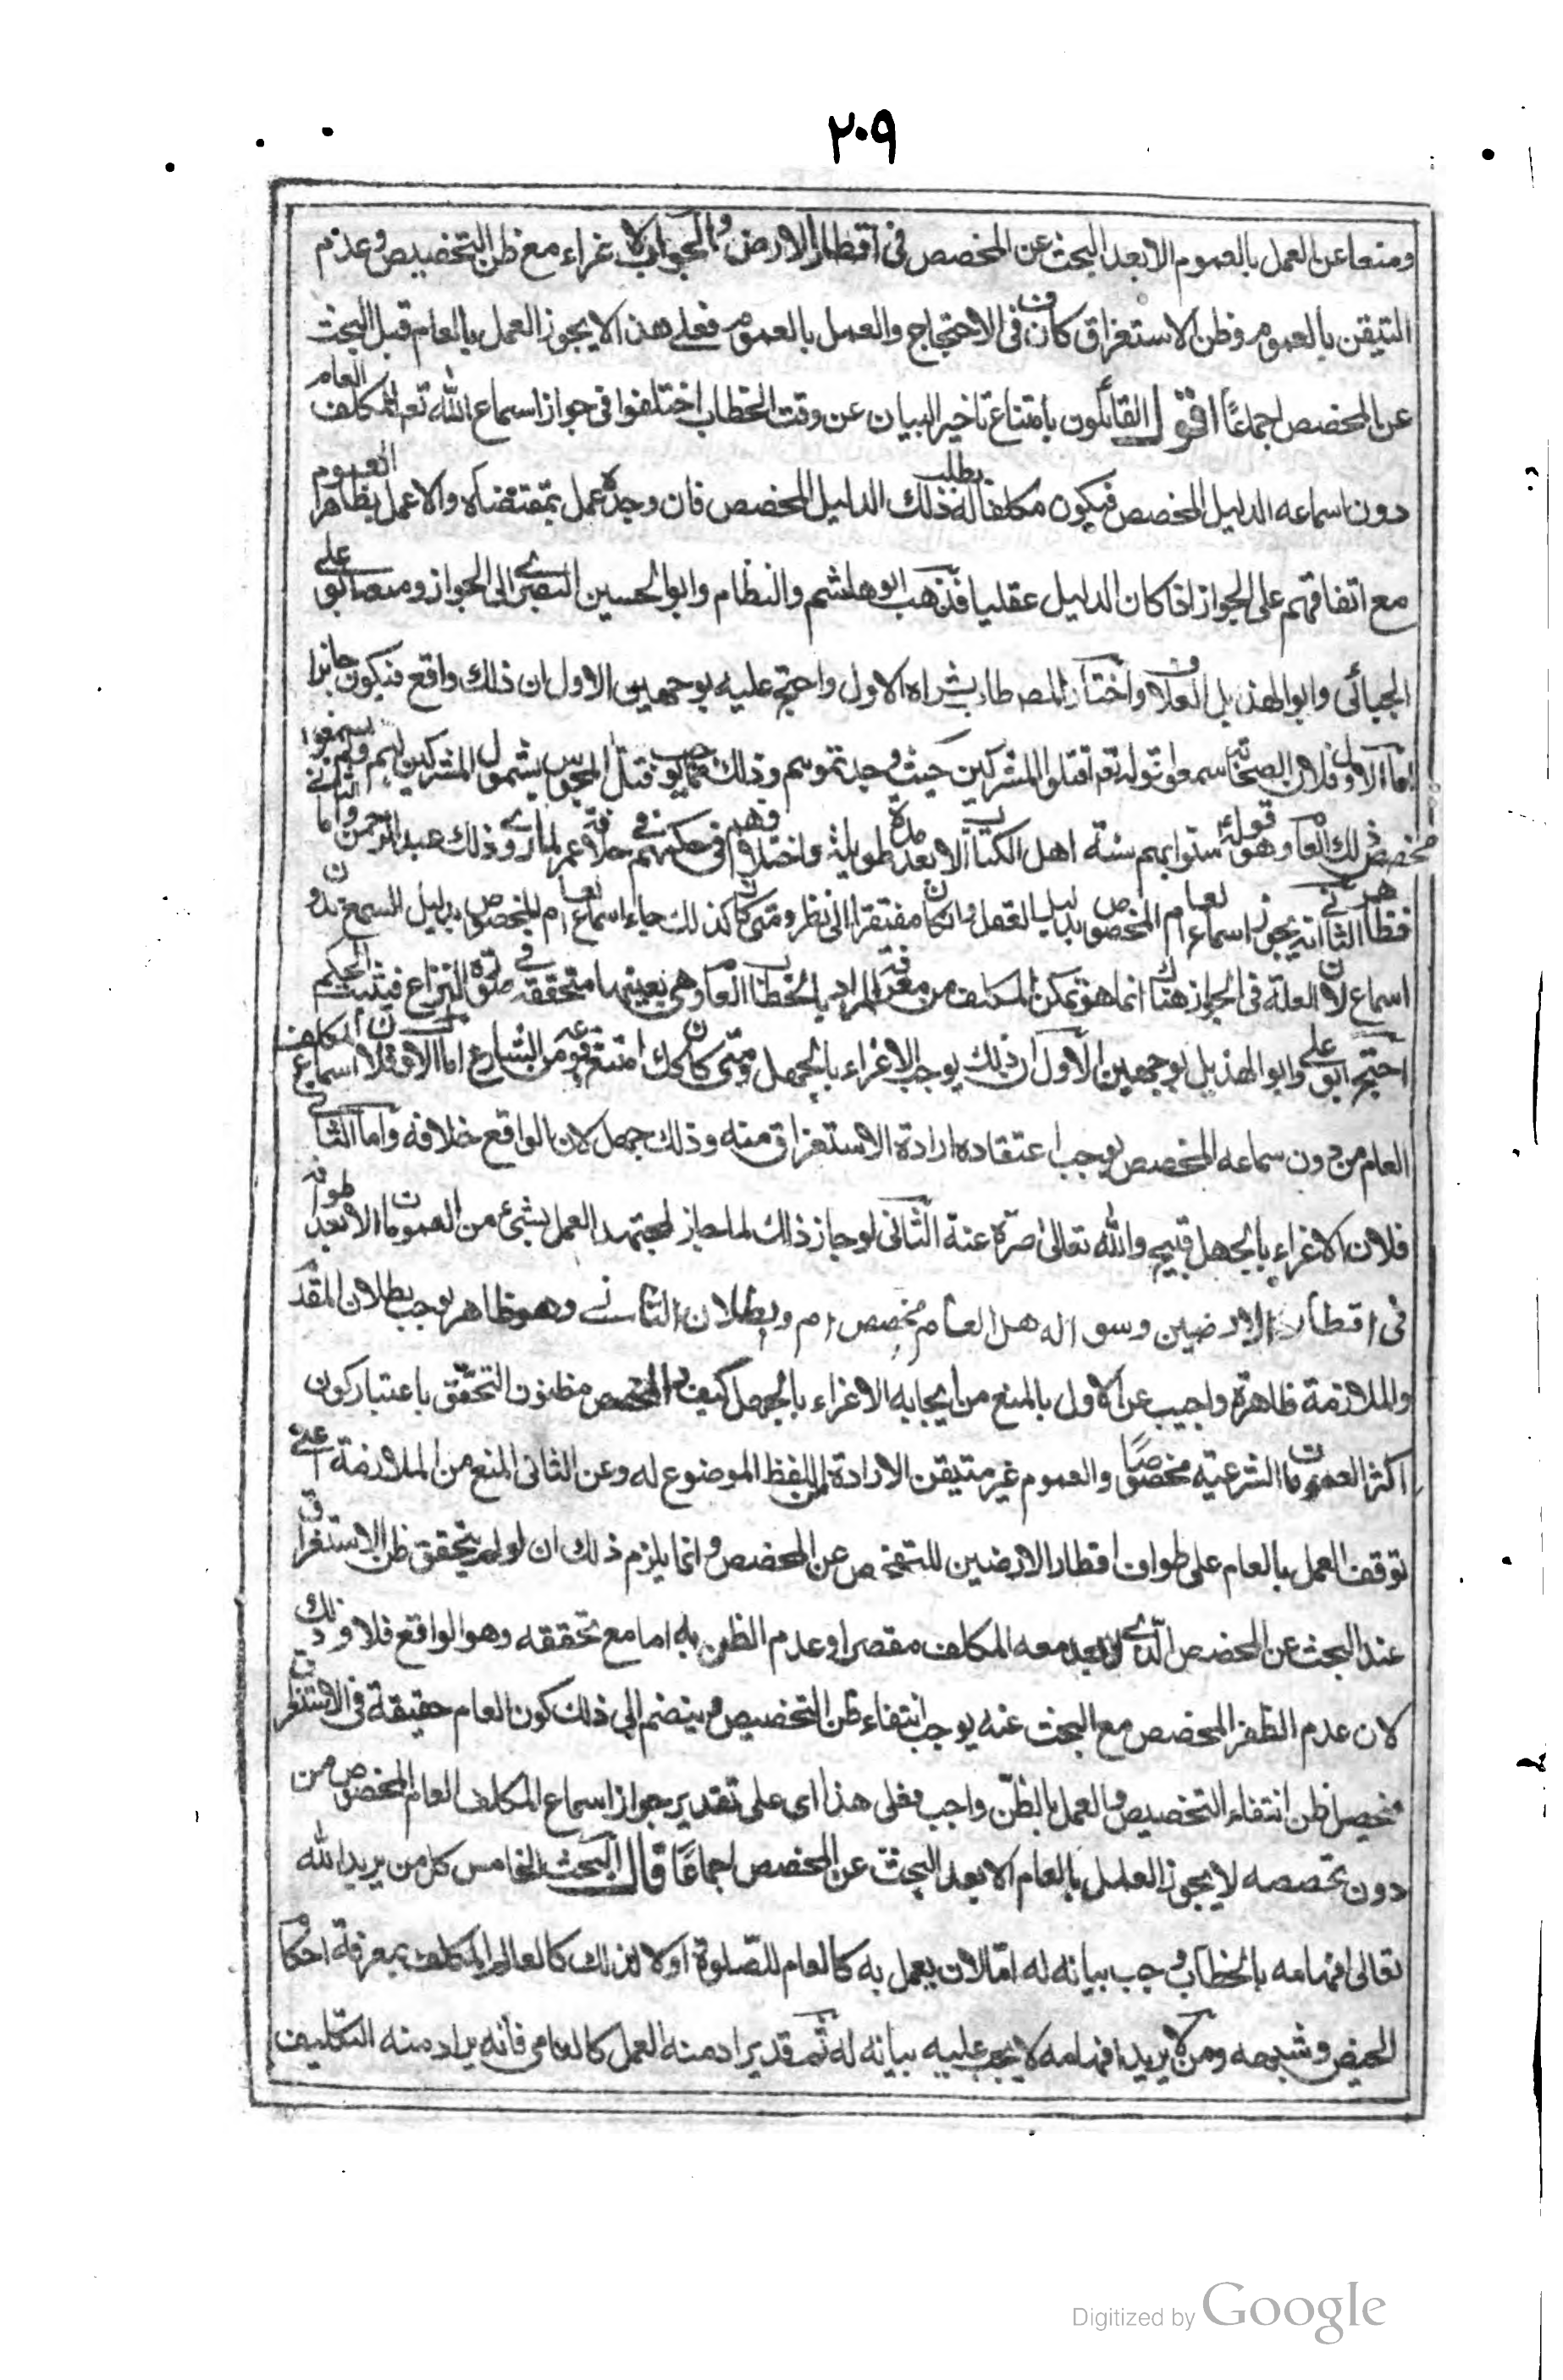 ٢٠٩
ومنعا عن العمل بالعموم الا بعد البحث عن المخصص فى اقطار الارض والجواب لا اغراء مع ظن التخصيص وعدم
التيقن بالعموم وظن الاستغراق كاف فى الاحتجاج والعمل بالعموم فعلى هذا لا يجوز العمل بالعام قبل البحث
عن المخصص اجماعًا اقول القائلون بامتناع تاخير البيان عن وقت الخطاب اختلفوا فى جواز اسماع الله تعا المكلف العام
دون اسماعه الدليل المخصص فيكون مكلفا بطلب ذلك الدليل المخصص فان وجده عمل بمقتضاه والا عمل بظاهر العموم
مع اتفاقهم على الجواز اذا كان الدليل عقليا فذهب ابو هاشم والنظام وابو الحسين البصرى الى الجواز ومنعه ابو على
الجبائى وابو الهذيل العلاف واختار المصه طاب ثراه الاول واحتج عليه بوجهين الاول ان ذلك واقع فيكون جايزا
اما الاول فلان الصحابة سمعوا قوله تعه اقتلوا المشركين حيث وجدتموهم وذلك مما يوجب قتل المجوس بشمول المشركين لهم ولم يسمعوا
مخصص ذلك العام وهو قوله سنوا بهم سنة اهل الكتاب الا بعد مدة طويلة واختلافهم فى حكمهم فى خلافة عمر لما روى ذلك عبد الرحمن واما الثانى
فظاهر الثانى انه يجوز اسماع العام المخصوص بدليل العقل وان كان مفتقرا الى نظر ومتى كان كذلك جاء اسماع العام المخصوص بدليل السمع بدون
اسماع لان العلة فى الجواز هناك انما هو تمكن المكلف من معرفة المراد بالخطاب العام وهى بعينها متحققة فى صورة النزاع فيثبت الحكم
احتج ابو على وابو الهذيل بوجهين الاول ان ذلك يوجب الاغراء بالجهل ومتى كان كك امتنع وقوعه من الشارع اما الاول فلان اسماع المكلف
العام من دون سماعه المخصص يوجب اعتقاده ارادة الاستغراق منه وذلك جهل لان الواقع خلافه واما الثانى
فلان الاغراء بالجهل قبيح والله تعالى منزه عنه الثانى لو جاز ذلك لما جاز لمجتهد العمل بشئ من العمومات الا بعد طوافه
فى اقطار الارضين وسواله هل العام مخصص ام وبطلان الثانى وهو ظاهر يوجب بطلان المقدم
والملازمة ظاهرة واجيب عن الاول بالمنع من ايجابه الاغراء بالجهل كيف والمخصص مظنون التحقق باعتبار كون
اكثر العمومات الشرعية مخصصًا والعموم غير متيقن الارادة من اللفظ الموضوع له وعن الثانى المنع من الملازمة اعنى
توقف العمل بالعام على طواف اقطار الارضين للتفحص عن المخصص وانما يلزم ذلك ان لو لم يتحقق ظن الاستغراق
عند البحث عن المخصص الذى لا يعد معه المكلف مقصرا وعدم الظن به اما مع تحققه وهو الواقع فلا وذلك
لان عدم الظفر المخصص مع البحث عنه يوجب انتفاء ظن التخصيص وينضم الى ذلك كون العام حقيقة فى الاستغراق
فيحصل ظن انتفاء التخصيص والعمل بالظنّ واجب فعلى هذا اى على تقدير جواز اسماع المكلف العام المخصوص من
دون مخصصه لا يجوز العمل بالعام الا بعد البحث عن المخصص اجماعًا قال البحث الخامس كل من يريد الله
تعالى افهامه بالخطاب وجب بيانه له امّا لان يعمل به كالعام للصّلوة او لا لذلك كالعالم المكلف بمعرفة احكام
الحيض وشبهه ومن لا يريد افهامه لا يجب عليه بيانه له ثم قد يراد منه العمل كالعامى فانه يراد منه التكليف
Digitized by Google